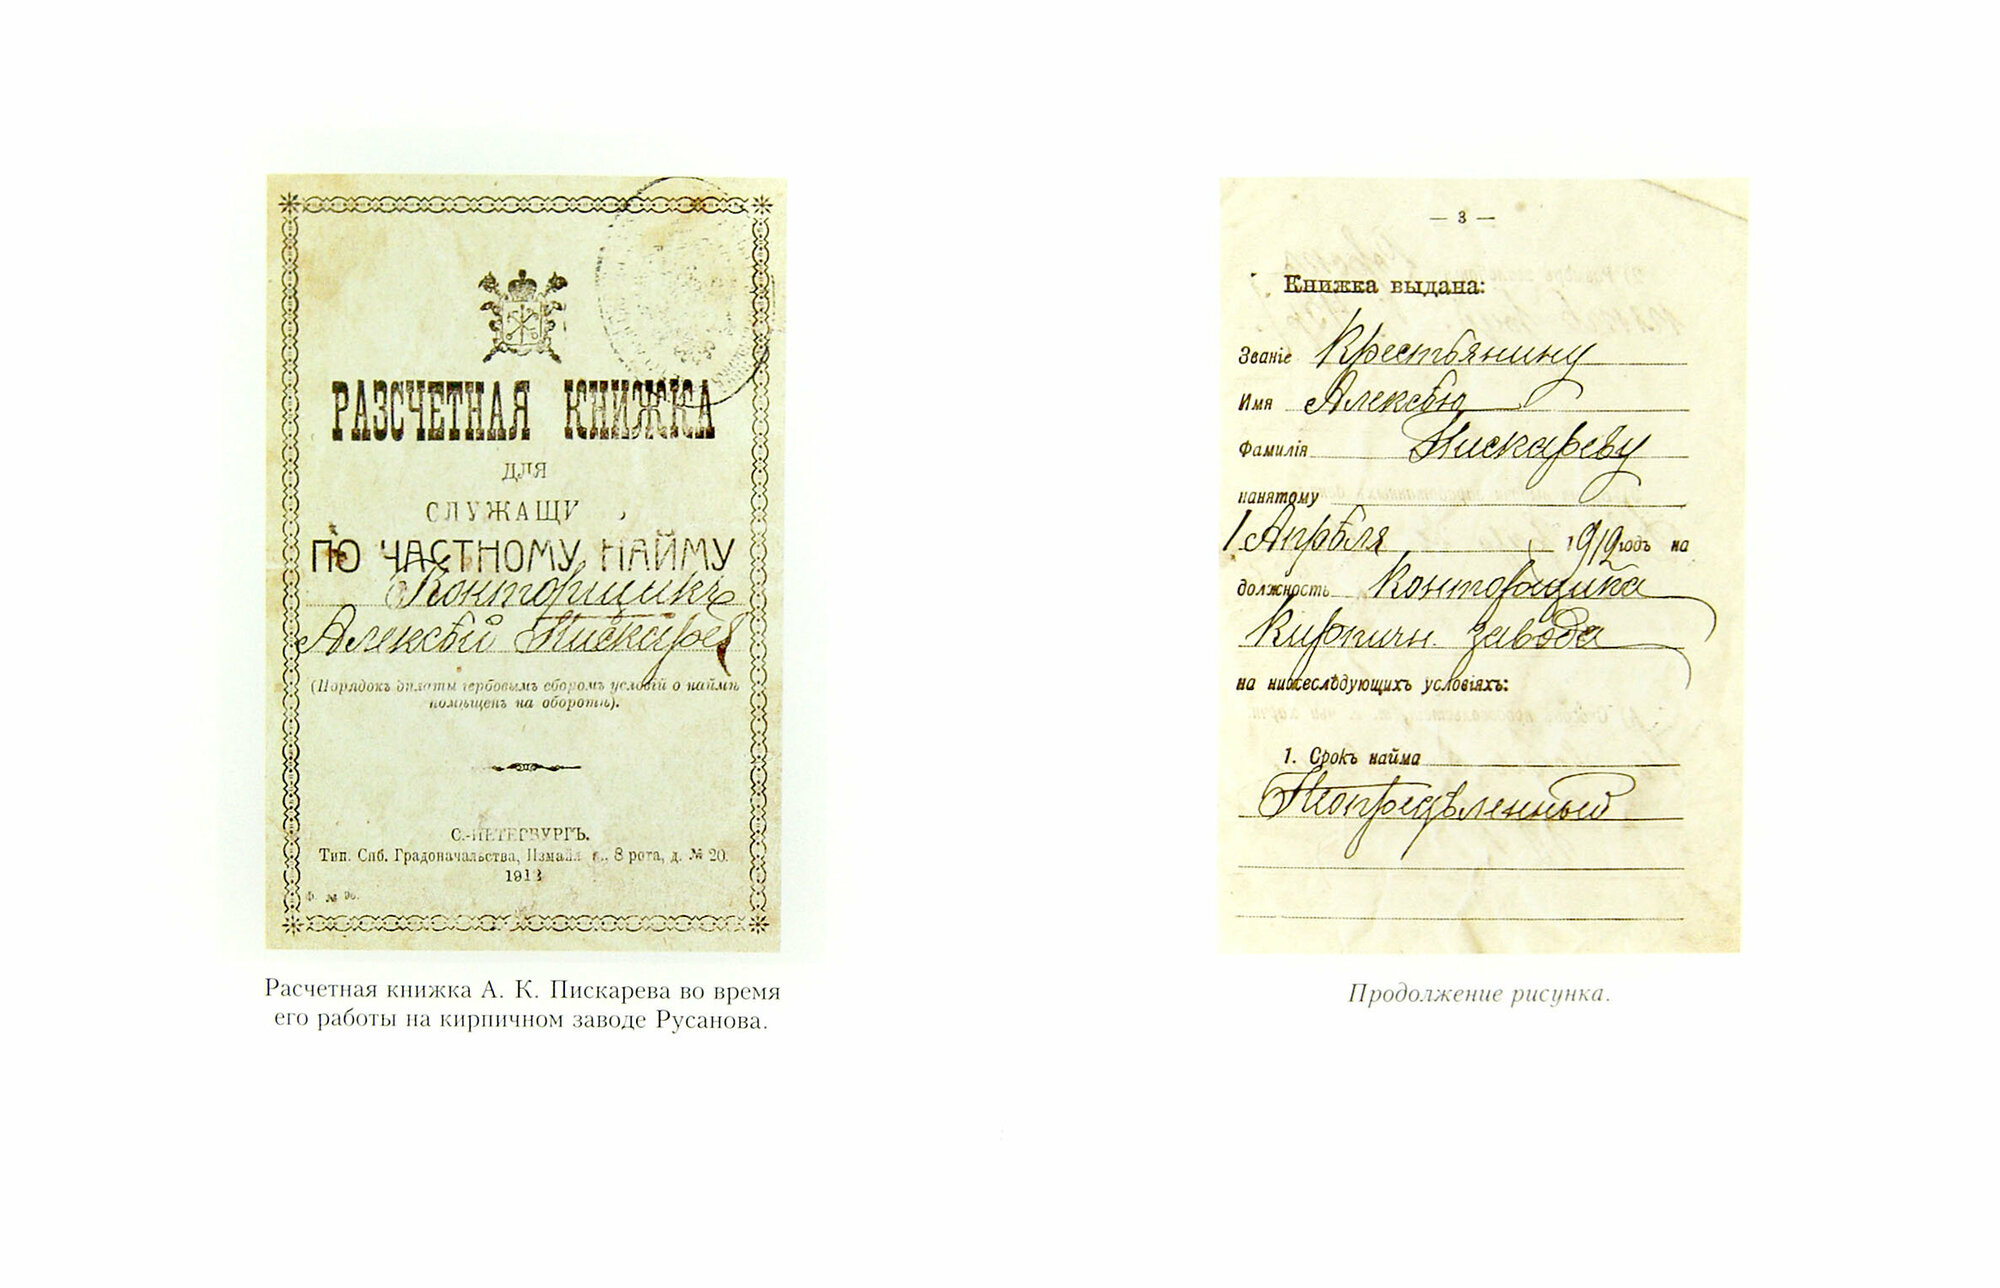 РАЗСЧЕТНАЯ КНИЖКА
ДЛЯ
СЛУЖАЩИ
ПО ЧАСТНОМУ НАЙМУ
Конторщикъ
Алексѣй Пискарев
(Порядокъ оплаты гербовымъ сборомъ условій о наймѣ
помѣщенъ на оборотѣ).
С.-ПЕТЕРБУРГЪ.
Тип. Спб. Градоначальства, Измайл п., 8 рота, д. № 20.
1913
Ф. № 96.
Расчетная книжка А. К. Пискарева во время
его работы на кирпичном заводе Русанова.
— 3 —
Книжка выдана:
Званіе Крестьянину
Имя Алексѣю
Фамилія Пискареву
нанятому
1 Апрѣля 1912 годъ на
должность Конторщика
Кирпичн. завода
на нижеслѣдующихъ условіяхъ:
1. Срокъ найма
Неопредѣленный
Продолжение рисунка.